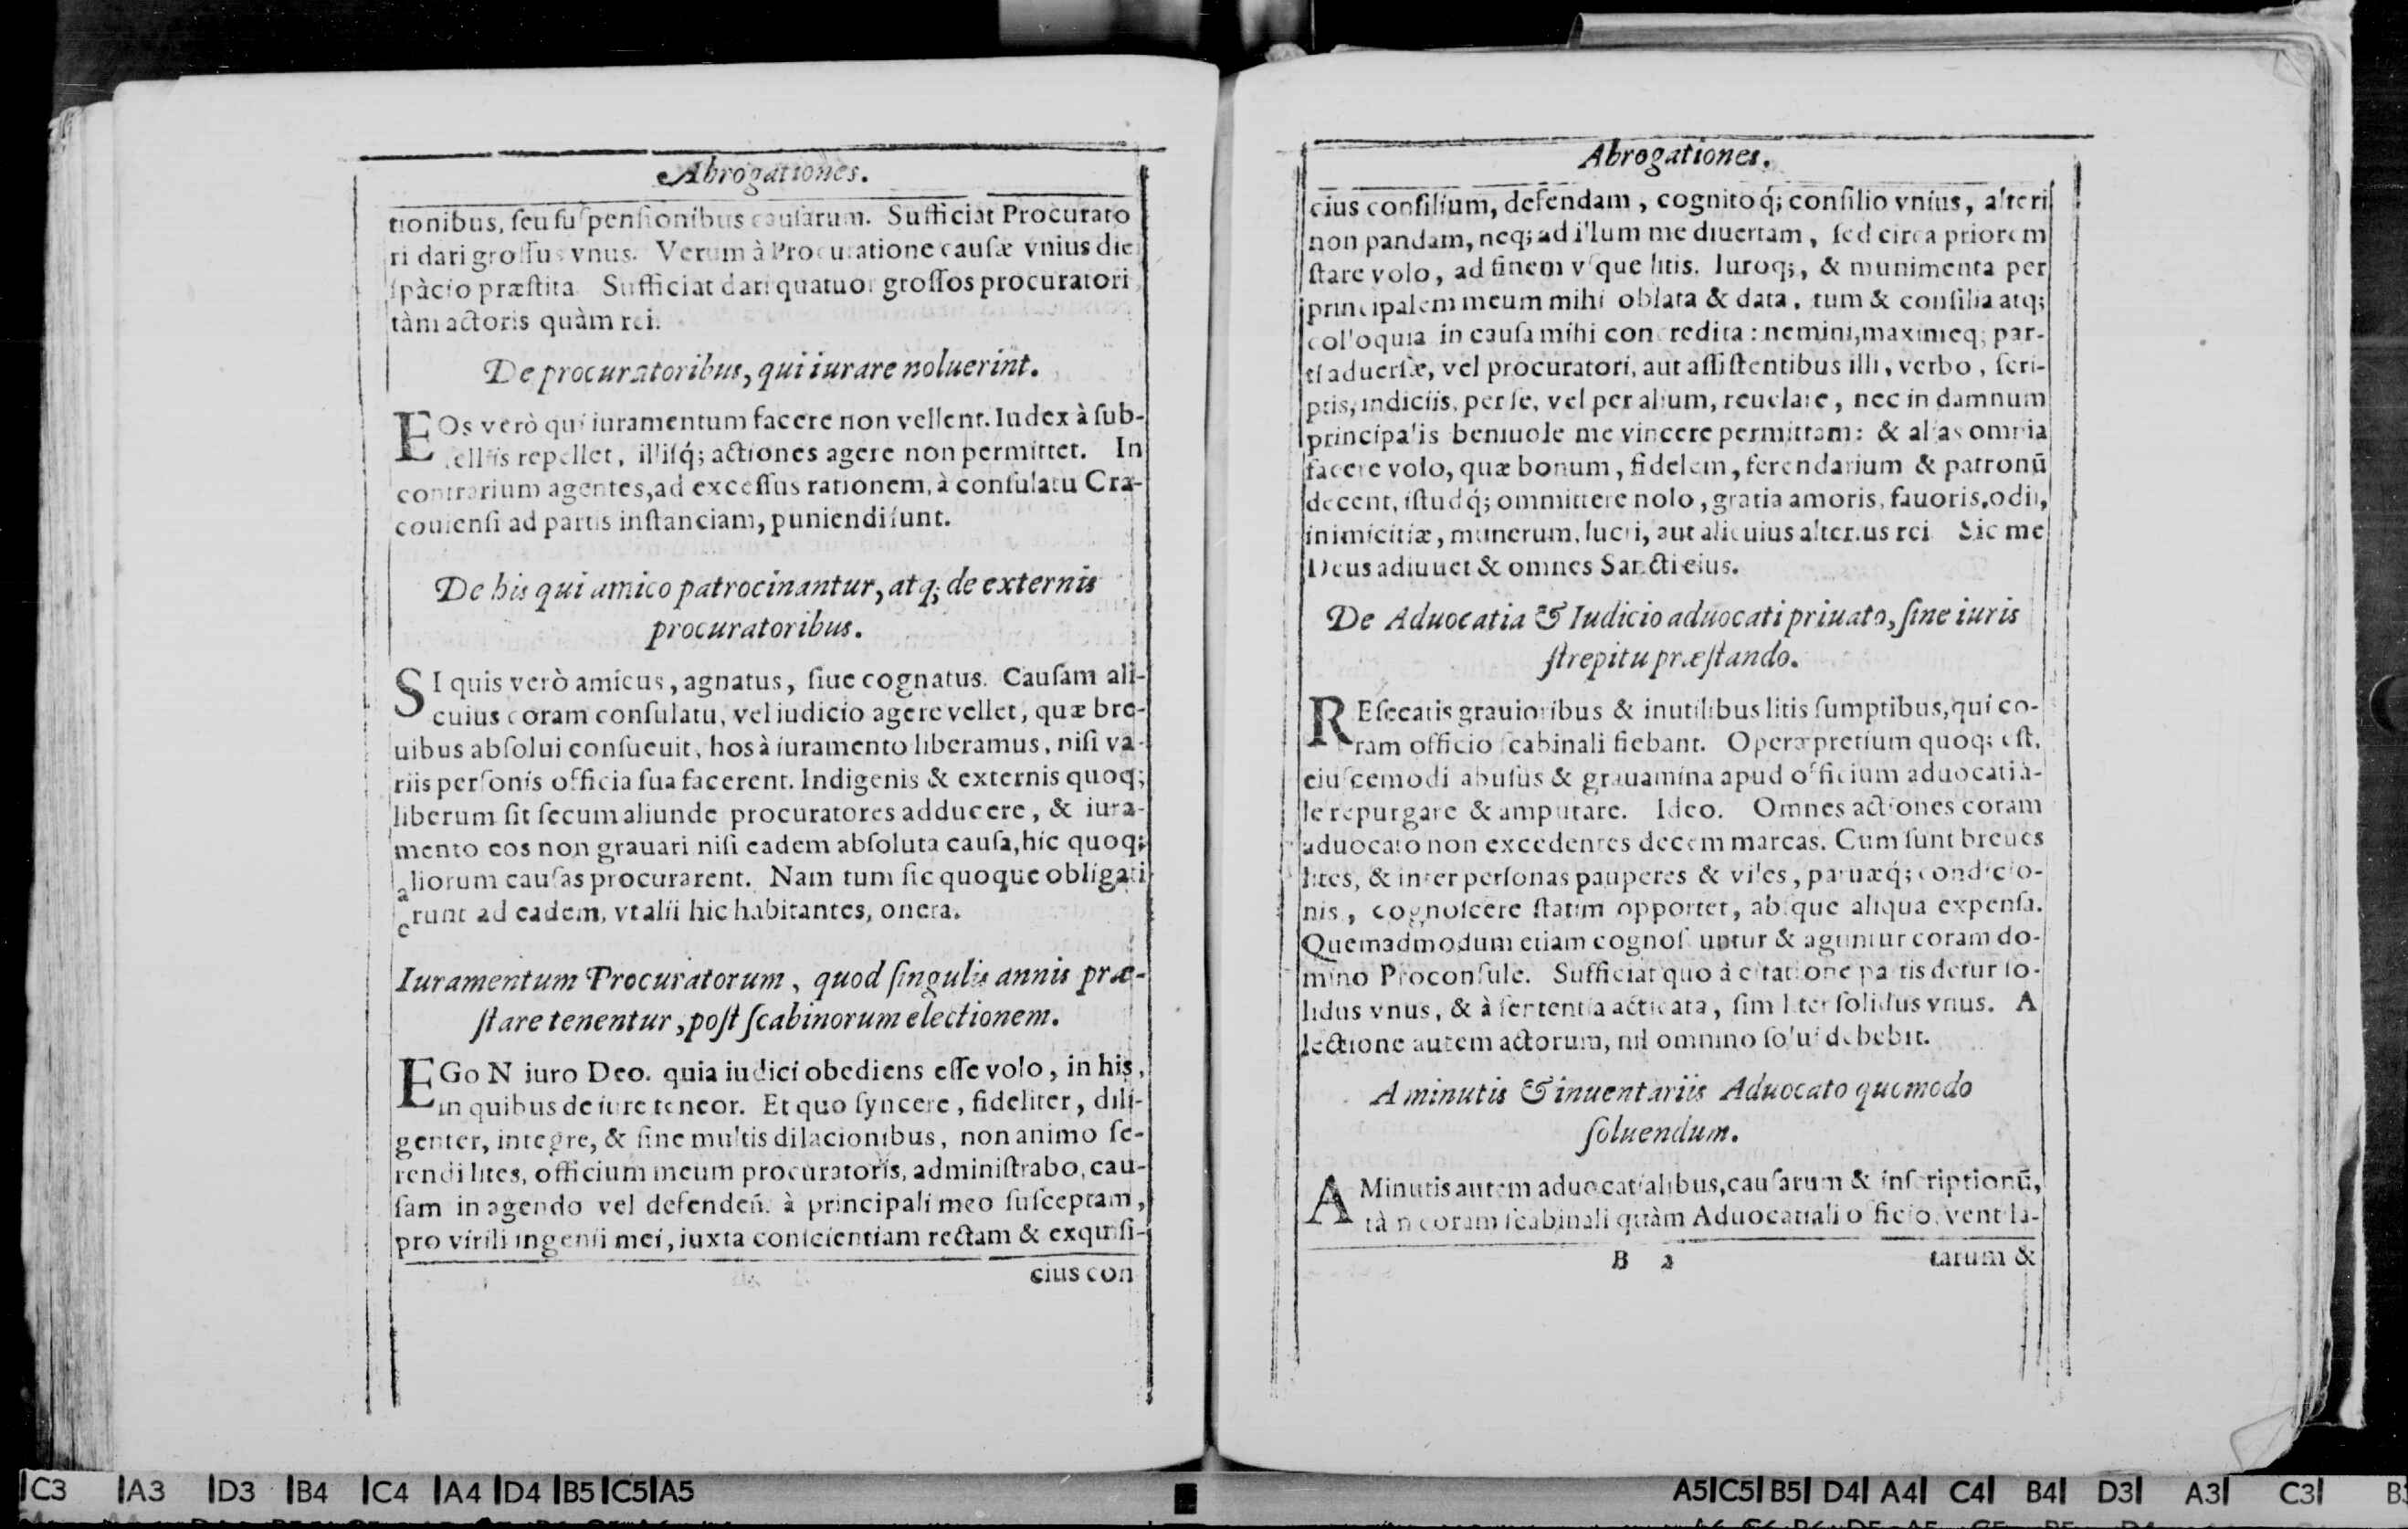 Abrogationes.
tionibus, ſeu ſuſpenſionibus cauſarum. Sufficiat Procurato
ri dari groſſus vnus. Verum à Procuratione cauſæ vnius die
ſpàcio præſtita Sufficiat dari quatuor groſſos procuratori
tàm actoris quàm rei.
De procuratoribus, qui iurare noluerint.
EOs verò qui iuramentum facere non vellent. Iudex à ſub-
ſelliis repellet, illiſq́; actiones agere non permittet. In
contrarium agentes, ad exceſſus rationem, à conſulatu Cra-
couienſi ad partis inſtanciam, puniendi ſunt.
De his qui amico patrocinantur, atq; de externis
procuratoribus.
SI quis verò amicus, agnatus, ſiue cognatus. Cauſam ali-
cuius coram conſulatu, vel iudicio agere vellet, quæ bre-
uibus abſolui conſueuit, hos à iuramento liberamus, niſi va-
riis perſonis officia ſua facerent. Indigenis & externis quoq;
liberum ſit ſecum aliunde procuratores adducere, & iura-
mento eos non grauari niſi eadem abſoluta cauſa, hic quoq;
aliorum cauſas procurarent. Nam tum ſic quoque obligati
erunt ad eadem, vt alii hic habitantes, onera.
Iuramentum Procuratorum, quod ſingulis annis præ-
ſtare tenentur, poſt ſcabinorum electionem.
EGo N iuro Deo. quia iudici obediens eſſe volo, in his,
in quibus de iure teneor. Et quo ſyncere, fideliter, dili-
genter, integre, & ſine multis dilacionibus, non animo ſe-
rendi lites, officium meum procuratoris, adminiſtrabo, cau-
ſam in agendo vel defendeń. à principali meo ſuſceptam,
pro virili ingenii mei, iuxta conſcientiam rectam & exquiſi-
cius con
Abrogationes.
cius conſilium, defendam, cognitoq́; conſilio vnius, alteri
non pandam, neq; ad illum me diuertam, ſed circa priorem
ſtare volo, ad finem vſque litis. Iuroq;, & munimenta per
principalem meum mihi oblata & data, tum & conſilia atq;
colloquia in cauſa mihi concredita: nemini, maximeq; par-
ti aduerſæ, vel procuratori, aut aſſiſtentibus illi, verbo, ſcri-
ptis, indiciis, per ſe, vel per alium, reuelare, nec in damnum
principalis beniuole me vincere permittam: & alias omnia
facere volo, quæ bonum, fidelem, ferendarium & patronū
decent, iſtudq́; ommittere nolo, gratia amoris, fauoris, odii,
inimicitiæ, munerum, lucri, aut alicuius alterius rei Sic me
Deus adiuuet & omnes Sancti eius.
De Aduocatia & Iudicio aduocati priuato, ſine iuris
ſtrepitu præſtando.
REſecatis grauioribus & inutilibus litis ſumptibus, qui co-
ram officio ſcabinali fiebant. Operæpretium quoq; eſt,
eiuſcemodi abuſus & grauamina apud officium aduocatia-
le repurgare & amputare. Ideo. Omnes actiones coram
aduocato non excedentes decem marcas. Cum ſunt breues
lites, & inter perſonas pauperes & viles, paruæq́; condicio-
nis, cognoſcere ſtatim opportet, abſque aliqua expenſa.
Quemadmodum etiam cognoſcuntur & aguntur coram do-
mino Proconſule. Sufficiat quo à citatione partis detur ſo-
lidus vnus, & à ſententia acticata, ſimiliter ſolidus vnus. A
lectione autem actorum, nil omnino ſolui debebit.
A minutis & inuentariis Aduocato quomodo
ſoluendum.
A Minutis autem aduocatialibus, cauſarum & inſcriptionū,
tàm coram ſcabinali quàm Aduocatiali officio, ventila-
B 2 tarum &
C3 A3 D3 B4 C4 A4 D4 B5 C5 A5
A5 C5 B5 D4 A4 C4 B4 D3 A3 C3